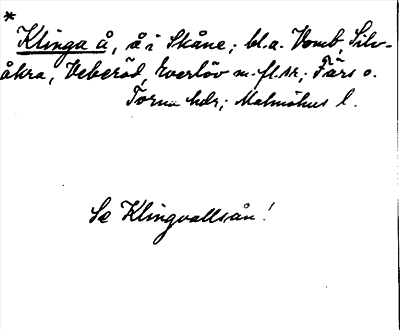 *
Klinga å, å i Skåne; bl.a. Vomb, Silv-
åkra, Veberöd, Everlöv m.fl. sr; Färs o.
Torna hdr; Malmöhus l.
Se Klingvallsån!